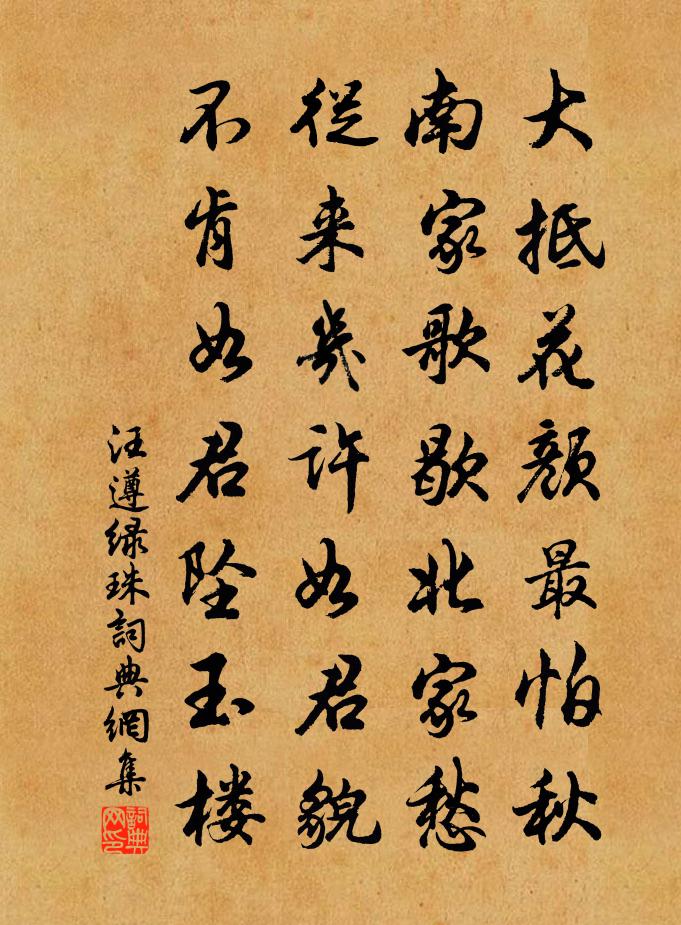 大抵花颜最怕秋
南家歌歇北家愁
從来幾许如君貌
不肯如君坠玉楼
汪遵緑珠詞典網集
詞典网印